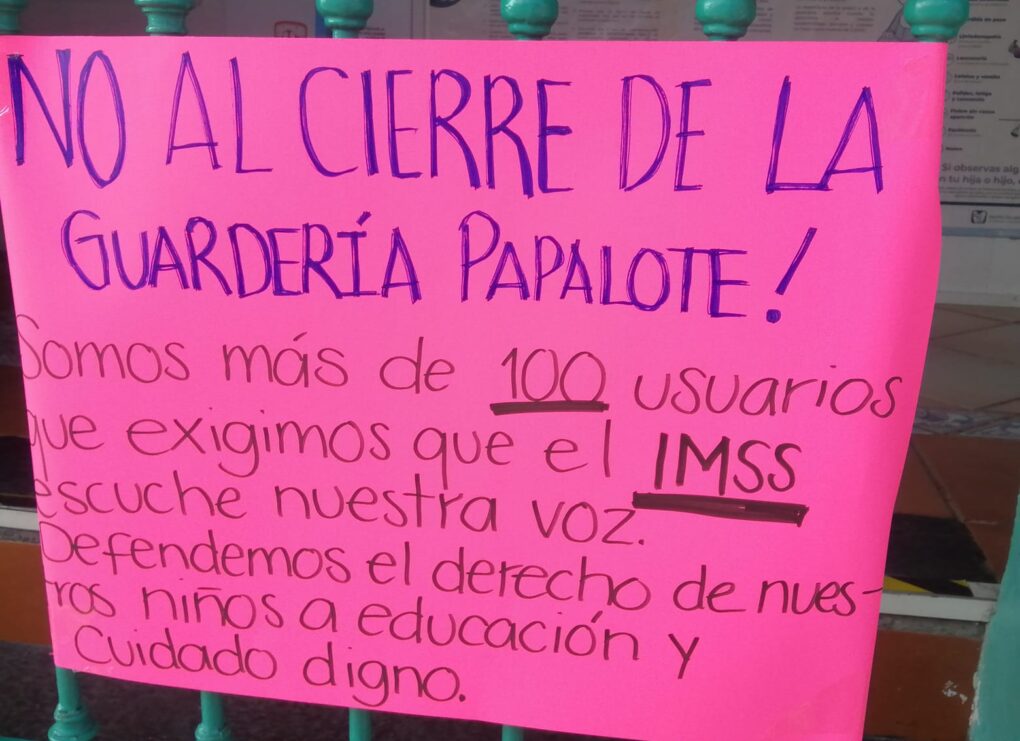 NO AL CIERRE DE LA
GUARDERÍA PAPALOTE!
Somos más de 100 usuarios
que exigimos que el IMSS
escuche nuestra voz.
Defendemos el derecho de nues-
tros niños a educación y
Cuidado digno.
Si observas alg
n tu hija o hijo,